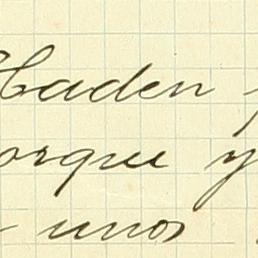 Haden
orque y
unos